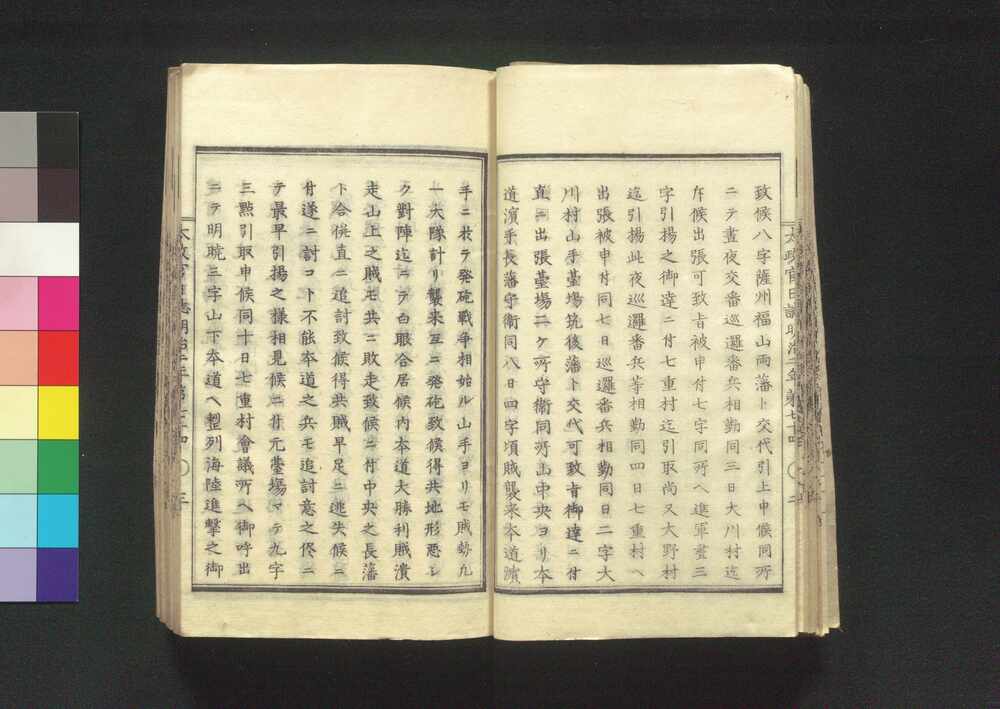 致候八字薩州福山両藩ト交代引上申候同所
ニテ晝夜交番巡邏番兵相勤同三日大川村迄
斥候出張可致旨被申付七字同所ヘ進軍晝三
字引揚之御達ニ付七重村迄引取尚又大野村
迄引揚此夜巡邏番兵等相勤同四日七重村ヘ
出張被申付同七日巡邏番兵相勤同日二字大
川村山手䑓場筑後藩ト交代可致旨御達ニ付
直ニ出張䑓場二ケ所守衛同所山中央ヨリ本
道濱手長藩守衛同八日四字頃賊襲来本道濱
太政官日誌明治二年第七十四 二
手ニ於テ発砲戦争相始ル山手ヨリモ賊勢凡
一大隊計リ襲来互ニ発砲致候得共地形悪シ
ク對陣迄ニテ白眼合居候内本道大勝利賊潰
走山上之賊モ共ニ敗走致候ニ付中央之長藩
ト合併直ニ追討致候得共賊早足ニ逃失候ニ
付遂ニ討コト不能本道之兵モ追討意之侭ニ
テ最早引揚之様相見候ニ付元䑓場マテ九字
三點引取申候同十日七重村會議所ヘ御呼出
ニテ明暁三字山下本道ヘ整列海陸進撃之御
太政官日誌明治二年第七十四 三